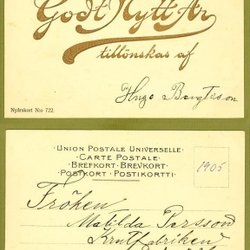 Godt Nytt År
tillönskas af
Hugo Bengtsson
Nyårskort No 722.
UNION POSTALE UNIVERSELLE
CARTE POSTALE
BREFKORT - BREVKORT
POSTKORT POSTIKORTTI
1905
Fröken
Matilda Persson
Krutfabriken